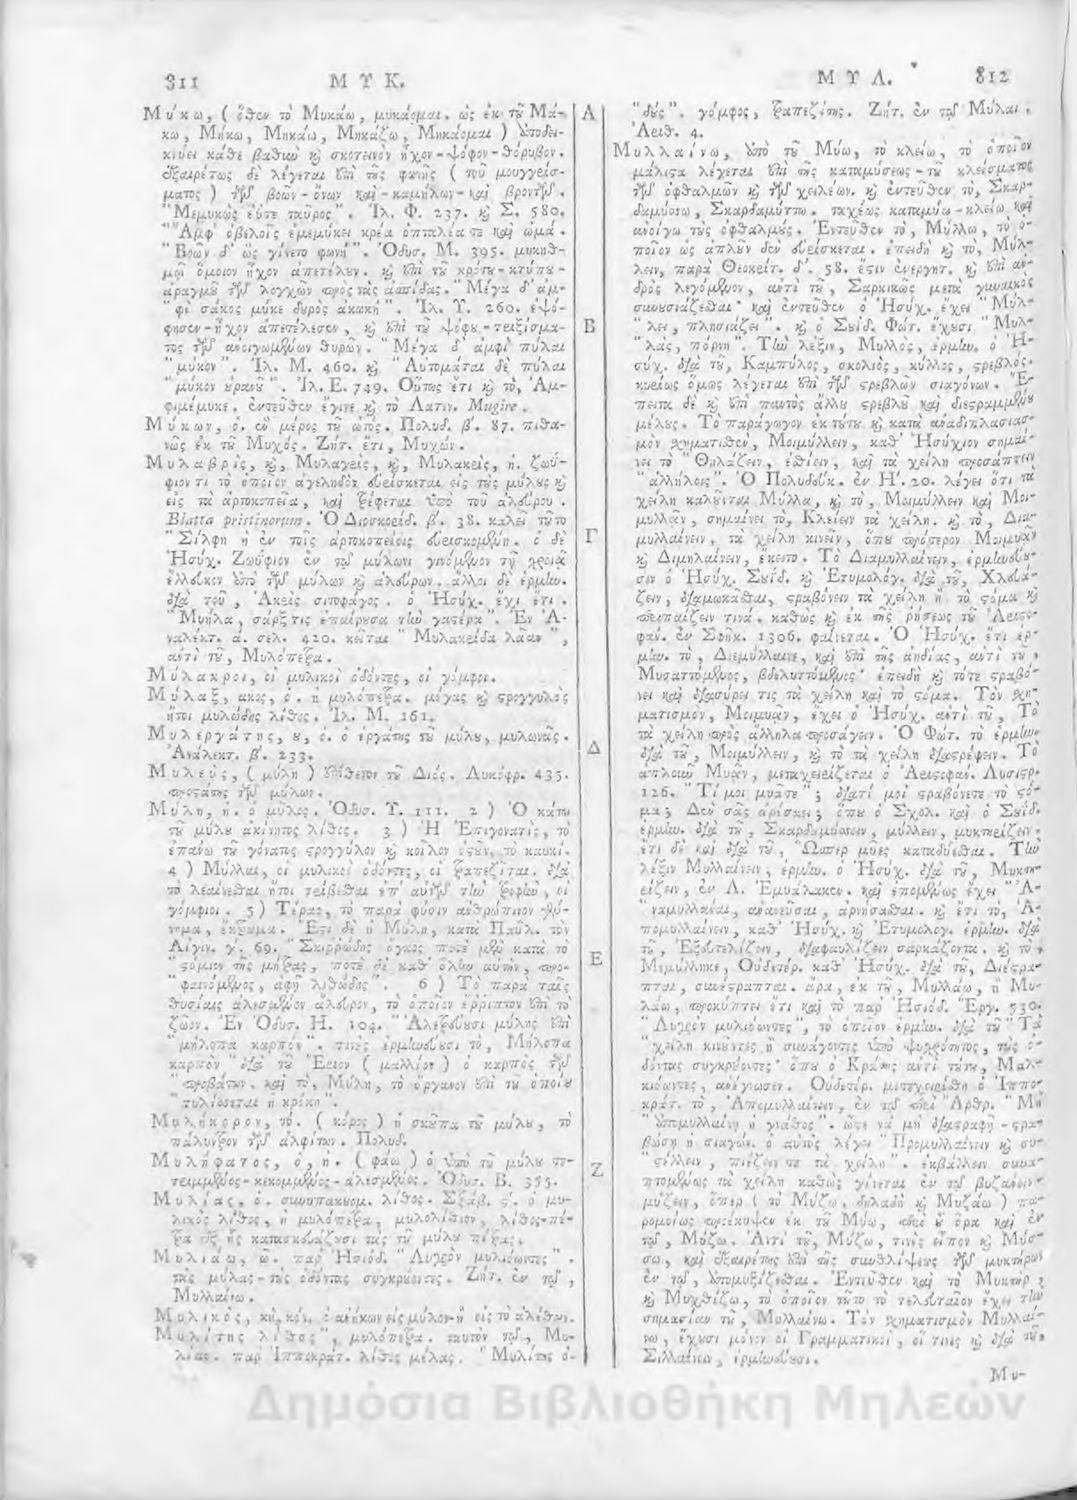 311 Μ Υ Κ.
Μύκω, ( ὅθεν τὸ Μυκάω, μυκάομαι. ὡς ἐκ τοῦ Μά-
κω, Μήκω, Μηκάω, Μηκάζω, Μηκάομαι ) ὑποδει-
κνύει κάθε βαθὺν καὶ σκοτεινὸν ἦχον - ψόφον - θόρυβον.
ἐξαιρέτως δὲ λέγεται ἐπὶ τῆς φωνῆς ( τοῦ μουγγείσ-
ματος ) τῶν βοῶν - ὄνων καὶ - καμήλων - καὶ βροντῶν.
" Μεμυκὼς ἠΰτε ταῦρος ". Ἰλ. Φ. 237. καὶ Σ. 580.
" Ἀμφ' ὀβελοῖς ἐμεμύκει κρέα ὀπταλέα τε καὶ ὠμά.
" Βοῶν δ' ὣς γίνετο φωνή ". Ὀδυσ. Μ. 395. μυκηθ-
μῷ ὅμοιον ἦχον ἀπετέλουν. καὶ ἐπὶ τοῦ κρότου - κτύπου -
ἀραγμοῦ τῶν λογχῶν πρὸς τὰς ἀσπίδας. " Μέγα δ' ἀμ-
" φὶ σάκος μύκε δουρὸς ἀκωκῇ ". Ἰλ. Υ. 260. ἐψό-
φησεν - ἦχον ἀπετέλεσεν, καὶ ἐπὶ τοῦ ψόφου - τριξίσμα-
τος τῶν ἀνοιγωμένων θυρῶν. " Μέγα δ' ἀμφὶ πύλαι
" μύκον ". Ἰλ. Μ. 460. καὶ " Αὐτόμαται δὲ πύλαι
" μύκον οὐρανοῦ ". Ἰλ. Ε. 749. Οὕτως ἔτι καὶ τὸ, Ἀμ-
φιμέμυκε. ἐντεῦθεν ἔγινε καὶ τὸ Λατιν. Mugire.
Μύκων, ὁ. ἓν μέρος τοῦ ὠτός. Πολυδ. β'. 87. πιθα-
νῶς ἐκ τοῦ Μυχός. Ζήτ. ἔτι, Μυχών.
Μυλαβρὶς, καὶ, Μυλαγρὶς, καὶ, Μυλακρὶς, ἡ. ζωΰ-
φιόν τι τὸ ὁποῖον ἀγεληδὸν εὑρίσκεται εἰς τοὺς μύλους καὶ
εἰς τὰ ἀρτοκοπεῖα, καὶ τρέφεται ὑπὸ τοῦ ἀλεύρου.
Blatta pristinorum. Ὁ Διοσκορίδ. β'. 38. καλεῖ τοῦτο
" Σίλφη ἡ ἐν τοῖς ἀρτοκοπείοις εὑρισκομένη. ὁ δὲ
Ἡσύχ. Ζωΰφιον ἐν τῷ μύλωνι γινόμενον τῇ χροιᾷ
ἑλλοῦκεν ὑπὸ τῶν μύλων καὶ ἀλεύρων. ἄλλοι δὲ ἑρμην.
διὰ τοῦ, Ἀκρὶς σιτοφάγος. ὁ Ἡσύχ. ἔχει ἔτι.
" Μυήλα, σάρξ τις ἐπαίρουσα τὴν γαστέρα ". Ἐν Ἀ-
ναλέκτ. ά. σελ. 420. κεῖται " Μυλακρίδα λᾶαν ",
ἀντὶ τοῦ, Μυλόπετρα.
Μύλακροι, οἱ μυλικοὶ ὀδόντες, οἱ γόμφιοι.
Μύλαξ, ακος, ὁ. ἡ μυλόπετρα. μέγας καὶ στρογγυλὸς
ἤτοι μυλώδης λίθος. Ἰλ. Μ. 161.
Μυλεργάτης, ου, ὁ. ὁ ἐργάτης τοῦ μύλου, μυλωνᾶς.
Ἀνάλεκτ. β'. 233.
Μυλεὺς, ( μύλη ) ἐπίθετον τοῦ Διός. Λυκόφρ. 435.
προστάτης τῶν μύλων.
Μύλη, ἡ. ὁ μύλος. Ὀδυσ. Υ. 111. 2 ) Ὁ κάτω
τοῦ μύλου ἀκίνητος λίθος. 3 ) Ἡ Ἐπιγονατὶς, τὸ
ἐπάνω τοῦ γόνατος στρογγύλον καὶ κοῖλον ὀστοῦν, τὸ καυκί.
4 ) Μύλαι, οἱ μυλικοὶ ὀδόντες, οἱ τραπεζίται. διὰ
τὸ λεαίνεσθαι ἤτοι τρίβεσθαι ἐπ' αὐτῶν τὴν τροφὴν, οἱ
γόμφιοι. 5 ) Τέρας, τὸ παρὰ φύσιν ἀνθρώπινον
Ἔτι δὲ ἡ Μύλη, κατὰ Παῦλ. τὸν
Αἰγιν. γ'. 69. " Σκιρρώδης ὄγκος ποτὲ μὲν κατὰ τὸ
" στόμιον τῆς μήτρας, ποτὲ δὲ καθ' ὅλην αὐτὴν, προ-
" φαινόμενος, ἁφῇ λιθώδης ". 6 ) Τὸ παρὰ ταῖς
θυσίαις ἀλεσμένον ἄλευρον, τὸ ὁποῖον ἔρριπτον ἐπὶ τὸ
ζῶον. Ἐν Ὀδυσ. Η. 104. " Ἀλετρεύουσι μύλης ἐπὶ
" μήλοπα καρπόν ". τινὲς ἑρμηνεύουσι τὸ, Μήλοπα
καρπὸν " διὰ τοῦ Ἔριον ( μαλλίον ) ὁ καρπὸς τῶν
" προβάτων. καὶ τὸ, Μύλη, τὸ ὄργανον ἐπὶ τοῦ ὁποίου
" τυλίσσεται ἡ κρόκη ".
Μυλήκορον, τό. ( κόρος ) ἡ σκοῦπα τοῦ μύλου, τὸ
πάλυντρον τῶν ἀλφίτων. Πολυδ.
Μυλήφατος, ὁ, ἡ. ( φάω ) ὁ ὑπὸ τοῦ μύλου τε-
τριμμένος - κεκομμένος - ἀλεσμένος. Ὀδυσ. Β. 355.
Μυλίας, ὁ. συνυπακουομ. λίθος. Στράβ. ς'. ὁ μυ-
λικὸς λίθος, ἡ μυλόπετρα, μυλολίθιον, λίθος - πέ-
τρα ἐξ ἧς κατασκευάζουσι τὰς τοῦ μύλου πέτρας.
Μυλιάω, ῶ. παρ' Ἡσιόδ. " Λυγρὸν μυλιόωντες ".
τὰς μύλας - τοὺς ὀδόντας συγκρούοντες. Ζήτ. ἐν τῷ,
Μυλλαίνω.
Μυλικὸς, κὴ, κόν. ὁ ἀνήκων εἰς μύλον - ἢ εἰς τὸ ἀλέθειν.
Μυλίτης λίθος ", μυλόπετρα. ταυτὸν τῷ, Μυ-
λίας. παρ' Ἱπποκράτ. λίθος μέλας. " Μυλίτης ὀ-
Α
Β
Γ
Δ
Ε
Ζ
Μ Υ Λ. 312
" δούς ". γόμφιος, τραπεζίτης. Ζήτ. ἐν τῷ Μύλαι.
Ἀριθ. 4.
Μυλλαίνω, ὑπὸ τοῦ Μύω, τὸ κλείω, τὸ ὁποῖον
μάλιστα λέγεται ἐπὶ τῆς καταμύσεως - τοῦ κλείσματος
τῶν ὀφθαλμῶν καὶ τῶν χειλέων. καὶ ἐντεῦθεν τὸ, Σκαρ-
δαμύσσω, Σκαρδαμύττω. ταχέως καταμύω - κλείω καὶ
ἀνοίγω τοὺς ὀφθαλμούς. Ἐντεῦθεν τὸ, Μύλλω, τὸ ὁ-
ποῖον ὡς ἁπλοῦν δὲν εὑρίσκεται. ἐπειδὴ καὶ τὸ, Μύλ-
λειν, παρὰ Θεοκρίτ. δ'. 58. ἔστιν ἐνεργητ. καὶ ἐπὶ ἀν-
δρὸς λεγόμενον, ἀντὶ τοῦ, Σαρκικῶς μετὰ γυναικὸς
συνουσιάζεσθαι· καὶ ἐντεῦθεν ὁ Ἡσύχ. ἔχει " Μύλ-
" λει, πλησιάζει ". καὶ ὁ Σουΐδ. Φώτ. ἔχουσι " Μυλ-
" λὰς, πόρνη ". Τὴν λέξιν, Μυλλὸς, ἑρμην. ὁ Ἡ-
σύχ. διὰ τοῦ, Καμπύλος, σκολιὸς, κύλλος, στρεβλός.
κυρίως ὅμως λέγεται ἐπὶ τῶν στρεβλῶν σιαγόνων. Ἔ-
πειτα δὲ καὶ ἐπὶ παντὸς ἄλλου στρεβλοῦ καὶ διεστραμμένου
μέλους. Τὸ παράγωγον ἐκ τούτου καὶ κατὰ ἀναδιπλασιασ-
μὸν σχηματισθὲν, Μοιμύλλειν, καθ' Ἡσύχιον σημαί-
νει τὸ " Θηλάζειν, ἐσθίειν, καὶ τὰ χείλη προσάπτειν
" ἀλλήλοις ". Ὁ Πολυδεύκ. ἐν Η'. 20. λέγει ὅτι τὰ
χείλη καλοῦνται Μύλλα, καὶ τὸ, Μοιμύλλειν καὶ Μοι-
μυλλᾶν, σημαίνει τὸ, Κλείειν τὰ χείλη. καὶ τὸ, Δια-
μυλλαίνειν, τὰ χείλη κινεῖν, ὅπου πρότερον Μοιμυᾶν
καὶ Διμηλαίνειν, ἔκειτο. Τὸ Διαμυλλαίνειν, ἑρμηνεύου-
σιν ὁ Ἡσύχ. Σουΐδ. καὶ Ἐτυμολόγ. διὰ τοῦ, Χλευά-
ζειν, διαμωκᾶσθαι, στραβόνειν τὰ χείλη ἢ τὸ στόμα καὶ
περιπαίζειν τινά. καθὼς καὶ ἐκ τῆς ῥήσεως τοῦ Ἀριστο-
φάν. ἐν Σφηκ. 1306. φαίνεται. Ὁ Ἡσύχ. ἔτι ἑρ-
μην. τὸ, Διεμύλλαινε, καὶ ἐπὶ τῆς ἀηδίας, ἀντὶ τοῦ,
Μυσαττόμενος, βδελυττόμενος· ἐπειδὴ καὶ τότε στραβό-
νει καὶ διασύρει τις τὰ χείλη καὶ τὸ στόμα. Τὸν σχη-
ματισμὸν, Μοιμυᾶν, ἔχει ὁ Ἡσύχ. ἀντὶ τοῦ, Τὸ
τὰ χείλη πρὸς ἄλληλα προσάγειν. Ὁ Φώτ. τὸ ἑρμην.
διὰ τοῦ, Μοιμύλλειν, καὶ τὸ τὰ χείλη διαστρέφειν. Τὸ
ἁπλοῦν Μυᾶν, μεταχειρίζεται ὁ Ἀριστοφάν. Λυσιστρ.
126. " Τί μοι μυᾶτε "; διατί μοὶ στραβόνετε τὸ στό-
μα; Δὲν σᾶς ἀρέσκει; ὅπου ὁ Σχολ. καὶ ὁ Σουΐδ.
ἑρμην. διὰ τοῦ, Σκαρδαμύσσειν, μύλλειν, μυκτηρίζειν.
ἔτι δὲ καὶ διὰ τοῦ, Ὥσπερ μύες καταδύεσθαι. Τὴν
λέξιν Μυλλαίνειν, ἑρμην. ὁ Ἡσύχ. διὰ τοῦ, Μυκτη-
ρίζειν, ἐν Λ. Ἐμυάλακεν. καὶ ἑπομένως ἔχει " Ἀ-
" ναμυλλᾶναι, ἀνανεῦσαι, ἀρνήσασθαι. καὶ ἔτι τὸ, Ἀ-
πομυλλαίνειν, καθ' Ἡσύχ. καὶ Ἐτυμολογ. ἑρμην. διὰ
τοῦ, Ἐξευτελίζειν, διαφαυλίζειν σαρκάζοντα. καὶ τὸ,
Μεμύλληκε, Οὐδετέρ. καθ' Ἡσύχ. διὰ τοῦ, Διέστρα-
πται, συνέστραπται. ἄρα, ἐκ τοῦ, Μυλλάω, ἢ Μυ-
λάω, προκύπτει ἔτι καὶ τὸ παρ' Ἡσιόδ. Ἔργ. 530.
" Λυγρὸν μυλιόωντες ", τὸ ὁποῖον ἑρμην. διὰ τοῦ " Τὰ
" χείλη κινοῦντες ἢ συνάγοντες ὑπὸ ψυχρότητος, τοὺς ὀ-
δόντας συγκρούοντες· ὅπου ὁ Κράτης ἀντὶ τούτου, Μαλ-
κιόωντες, ἀνέγνωσεν. Οὐδετέρ. μετεχειρίσθη ὁ Ἱππο-
κράτ. τὸ, Ἀπομυλλαίνειν, ἐν τῷ περὶ Ἄρθρ. " Μὴ
" ὑπομυλλαίνῃ ἡ γνάθος ". ὥστε νὰ μὴ διαστραφῇ - στρα-
βώσῃ ἡ σιαγών. ὁ αὐτὸς λέγει " Προμυλλαίνειν καὶ συ-
" στέλλειν, πιέζειν τε τὰ χείλη ". ἐκβάλλειν συνα-
πτομένως τὰ χείλη καθὼς γίνεται ἐν τῷ βυζαίνειν -
μύζειν, ὅπερ ( τὸ Μύζω, δηλαδὴ καὶ Μυζάω ) πα-
ρομοίως προέκυψεν ἐκ τοῦ Μύω, περὶ οὗ ὅρα καὶ ἐν
τῷ, Μύζω. Ἀντὶ τοῦ, Μύζω, τινὲς εἶπον καὶ Μύσ-
σω, καὶ ἐξαιρέτως ἐπὶ τῆς συνθλίψεως τῶν μυκτήρων
ἐν τῷ, ἀπομυξίζεσθαι. Ἐντεῦθεν καὶ τὸ Μυκτὴρ,
καὶ Μυχθίζω, τὸ ὁποῖον τοῦτο τὸ τελευταῖον ἔχει τὴν
σημασίαν τοῦ, Μυλλαίνω. Τὸν σχηματισμὸν Μυλλαί-
νω, ἔχουσι μόνον οἱ Γραμματικοὶ, οἵτινες καὶ διὰ τοῦ,
Σιλλαίνειν, ἑρμηνεύουσι.
Μυ-
Δημόσια Βιβλιοθήκη Μηλεών